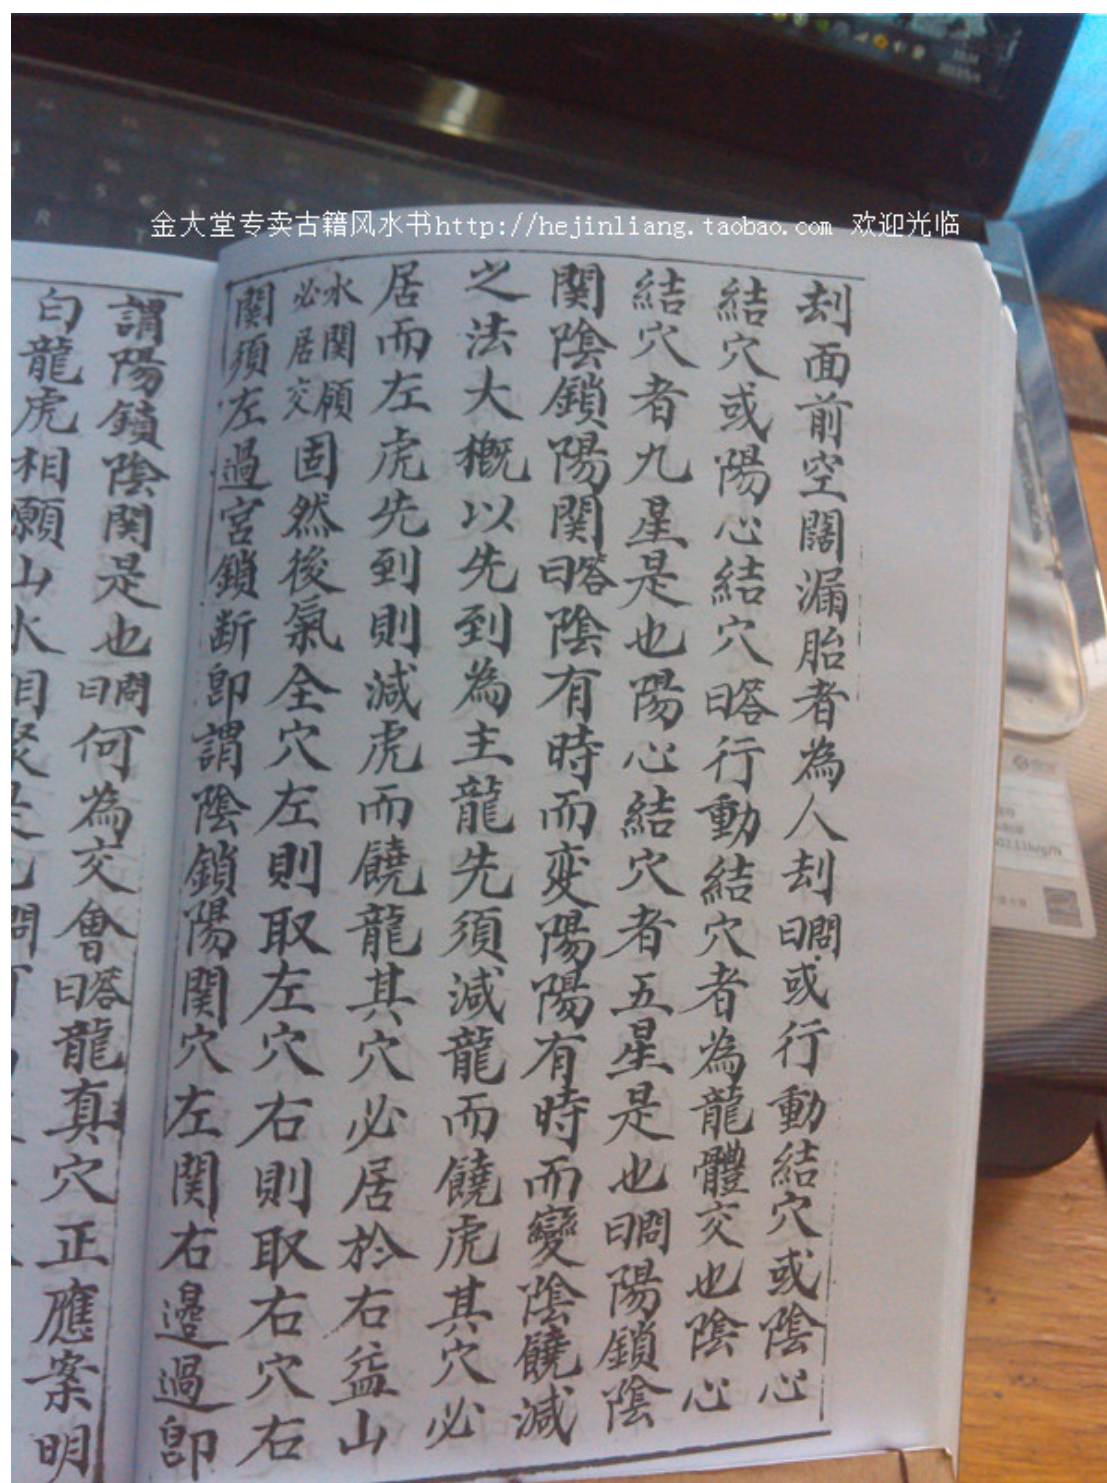 金大堂专卖古籍风水书http://hejinliang.taobao.com 欢迎光临
刦面前空闊漏胎者為人刦問曰或行動結穴或陰心
結穴或陽心結穴答曰行動結穴者為龍體交也陰心
結穴者九星是也陽心結穴者五星是也問曰陽鎖陰
関陰鎖陽関答曰陰有時而変陽陽有時而變陰饒減
之法大概以先到為主龍先須減龍而饒虎其穴必
居而左虎先到則減虎而饒龍其穴必居於右益山
水関顧
必居交
固然後氣全穴左則取左穴右則取右穴右
関須左過宮鎖断卽謂陰鎖陽関穴左関右邉過卽
謂陽鎖陰関是也問曰何為交會答曰龍真穴正應案明
白龍虎相顧山水相聚是也問